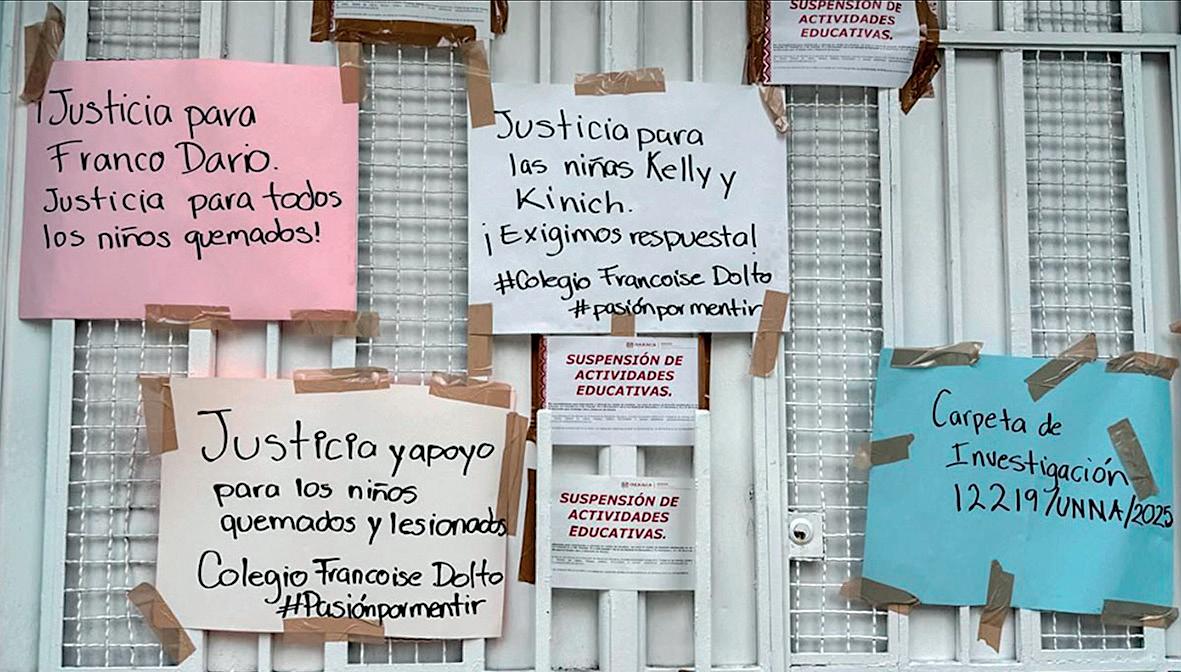 SUSPENSIÓN DE
ACTIVIDADES
EDUCATIVAS.
¡Justicia para
Franco Dario.
Justicia para todos
los niños quemados!
Justicia para
las niñas Kelly y
Kinich.
¡Exigimos respuesta!
#Colegio Francoise Dolto
#pasiónpormentir
OAXACA
SUSPENSIÓN DE
ACTIVIDADES
EDUCATIVAS.
Justicia y apoyo
para los niños
quemados y lesionados
Colegio Francoise Dolto
#Pasiónpormentir
OAXACA
SUSPENSIÓN DE
ACTIVIDADES
EDUCATIVAS.
Carpeta de
Investigación
12219/UNNA/2025